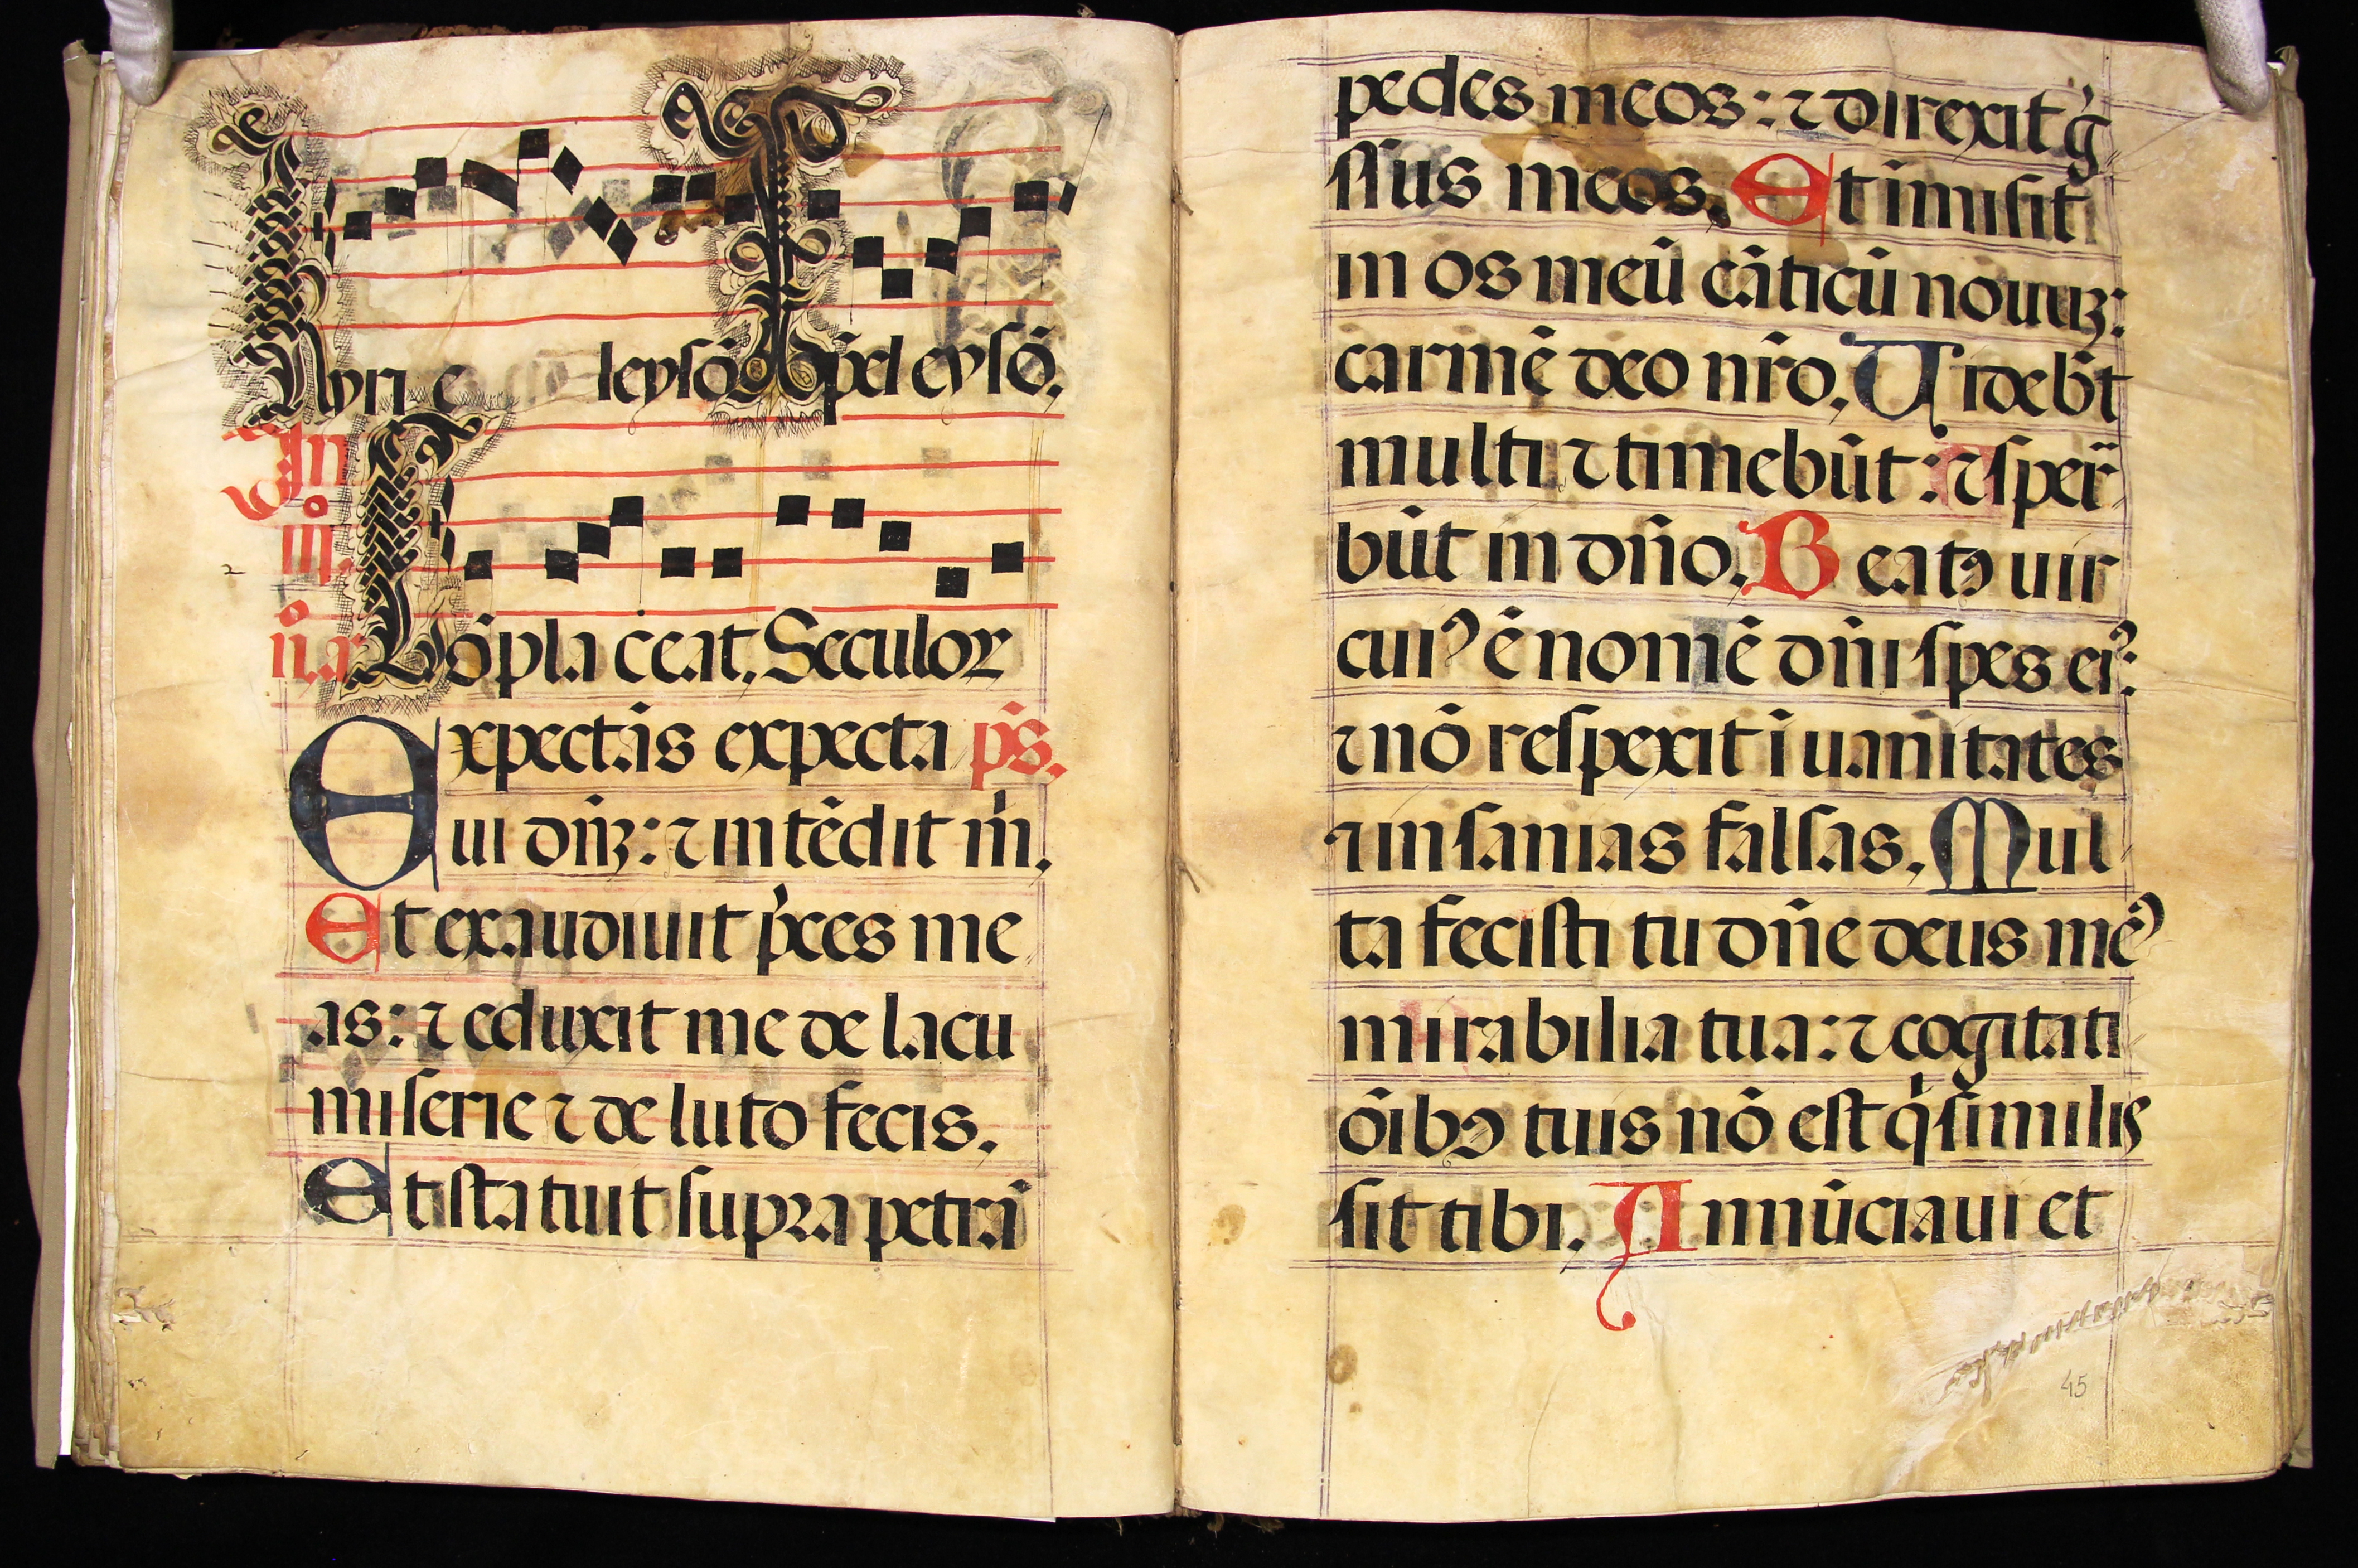 Kyri e leysō xp̄el eysō.
In
iijº
nº a Cōpla ceat. Seculoꝝ
Expectās expecta ps̄.
ui dn̄ꝫ: ⁊ intēdit m̄.
Et exaudiuit p̄ces me
as: ⁊ eduxit me de lacu
miserie ⁊ de luto fecis.
Et statuit supra petrā
pedes meos: ⁊ direxit g̃
ssus meos. Et īmisit
in os meū cāticū nouuꝫ:
carmē deo nr̄o. Videbt̄
multi ⁊ timebūt: ⁊ sper̄
būt in dn̄o. Beatꝰ uir
cuiꝰ ē nomē dn̄i spes eiꝰ:
⁊ nō respexit ī uanitates
⁊ insanias falsas. Mul
ta fecisti tu dn̄e deus meꝰ
mirabilia tua: ⁊ cogitati
ōibꝰ tuis nō est q̇ similis
sit tibi. Annūciaui et
45